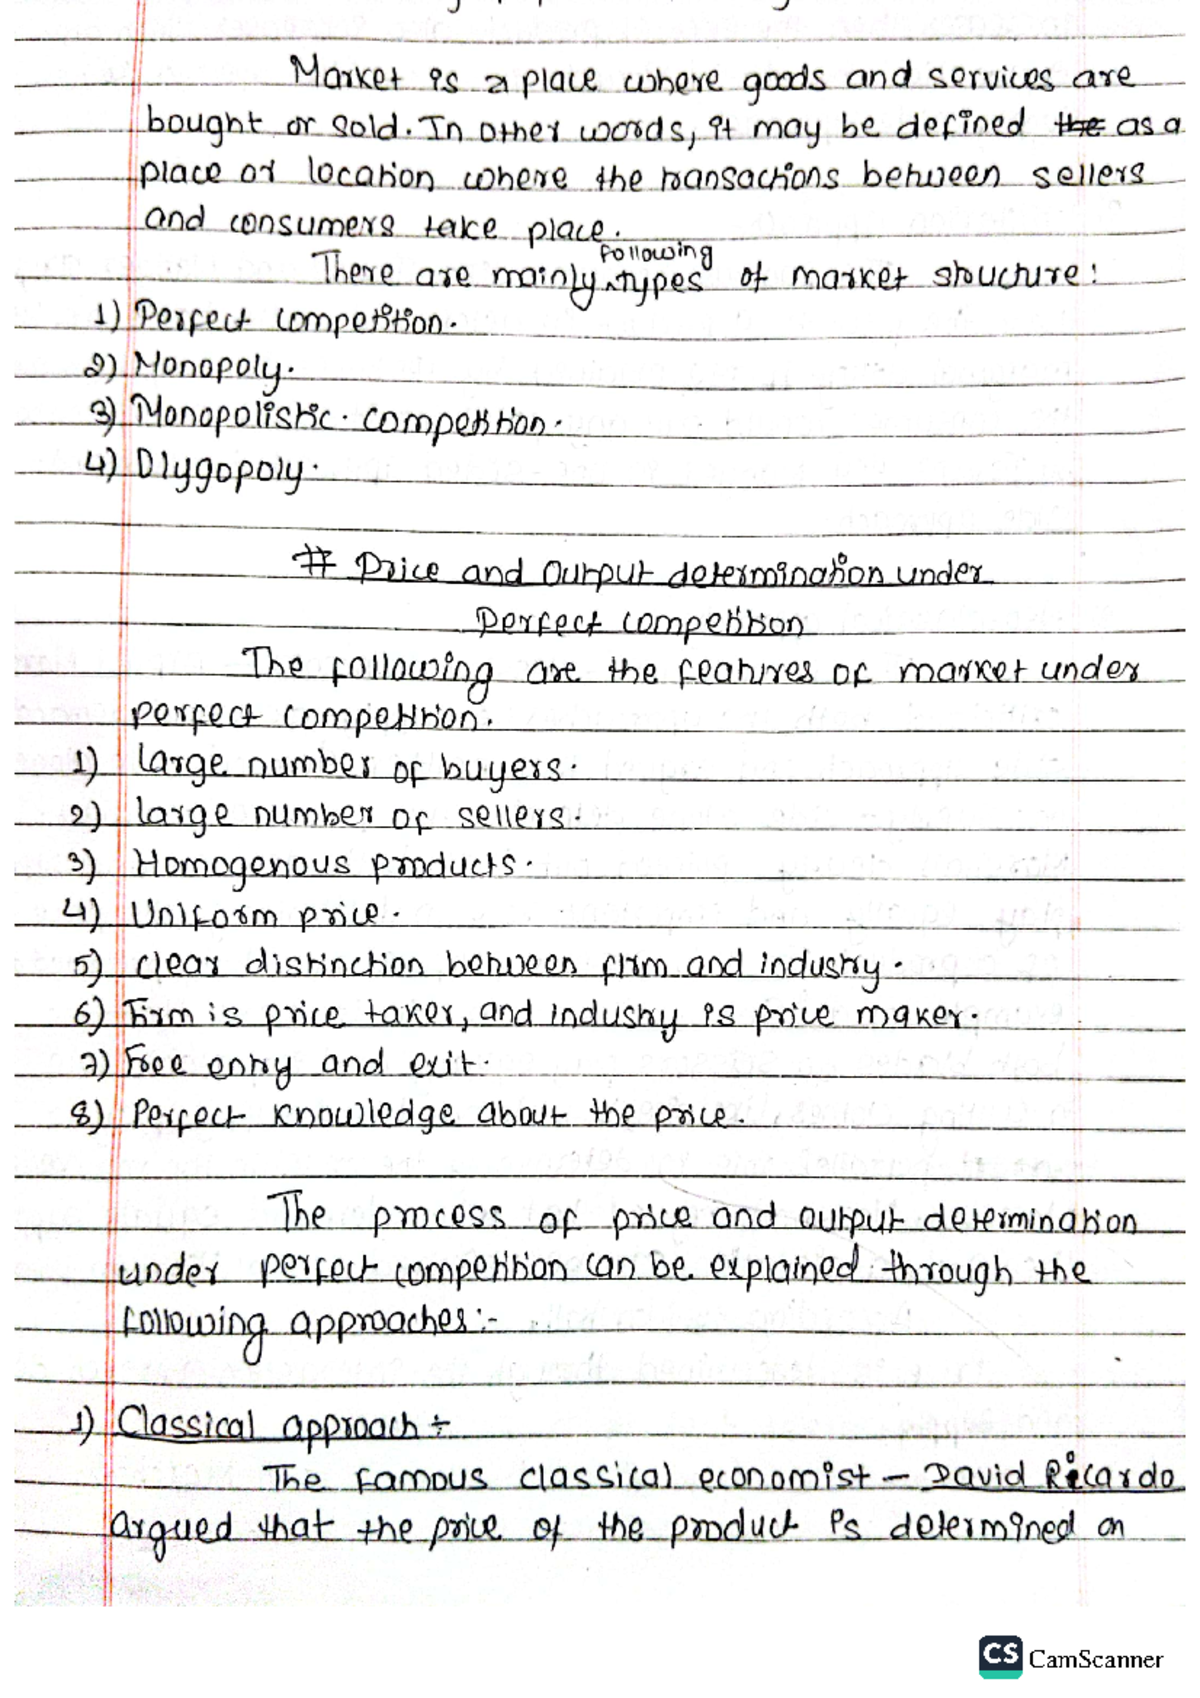 Market is a place where goods and services are
bought or sold. In other words, it may be defined the as a
place or location where the transactions between sellers
and consumers take place.
following
There are mainly types of market structure:
1) Perfect competition.
2) Monopoly.
3) Monopolistic. competition.
4) Olygopoly.
# Price and output determination under
Perfect competition
The following are the features of market under
perfect competition.
1) large number of buyers.
2) large number of sellers.
3) Homogenous products.
4) Uniform price.
5) clear distinction between firm and industry.
6) Firm is price taker, and industry is price maker.
7) Free entry and exit.
8) Perfect knowledge about the price.
The process of price and output determination
under perfect competition can be explained through the
following approaches:-
1) Classical approach ÷
The famous classical economist – David Ricardo
argued that the price of the product is determined on
CS CamScanner